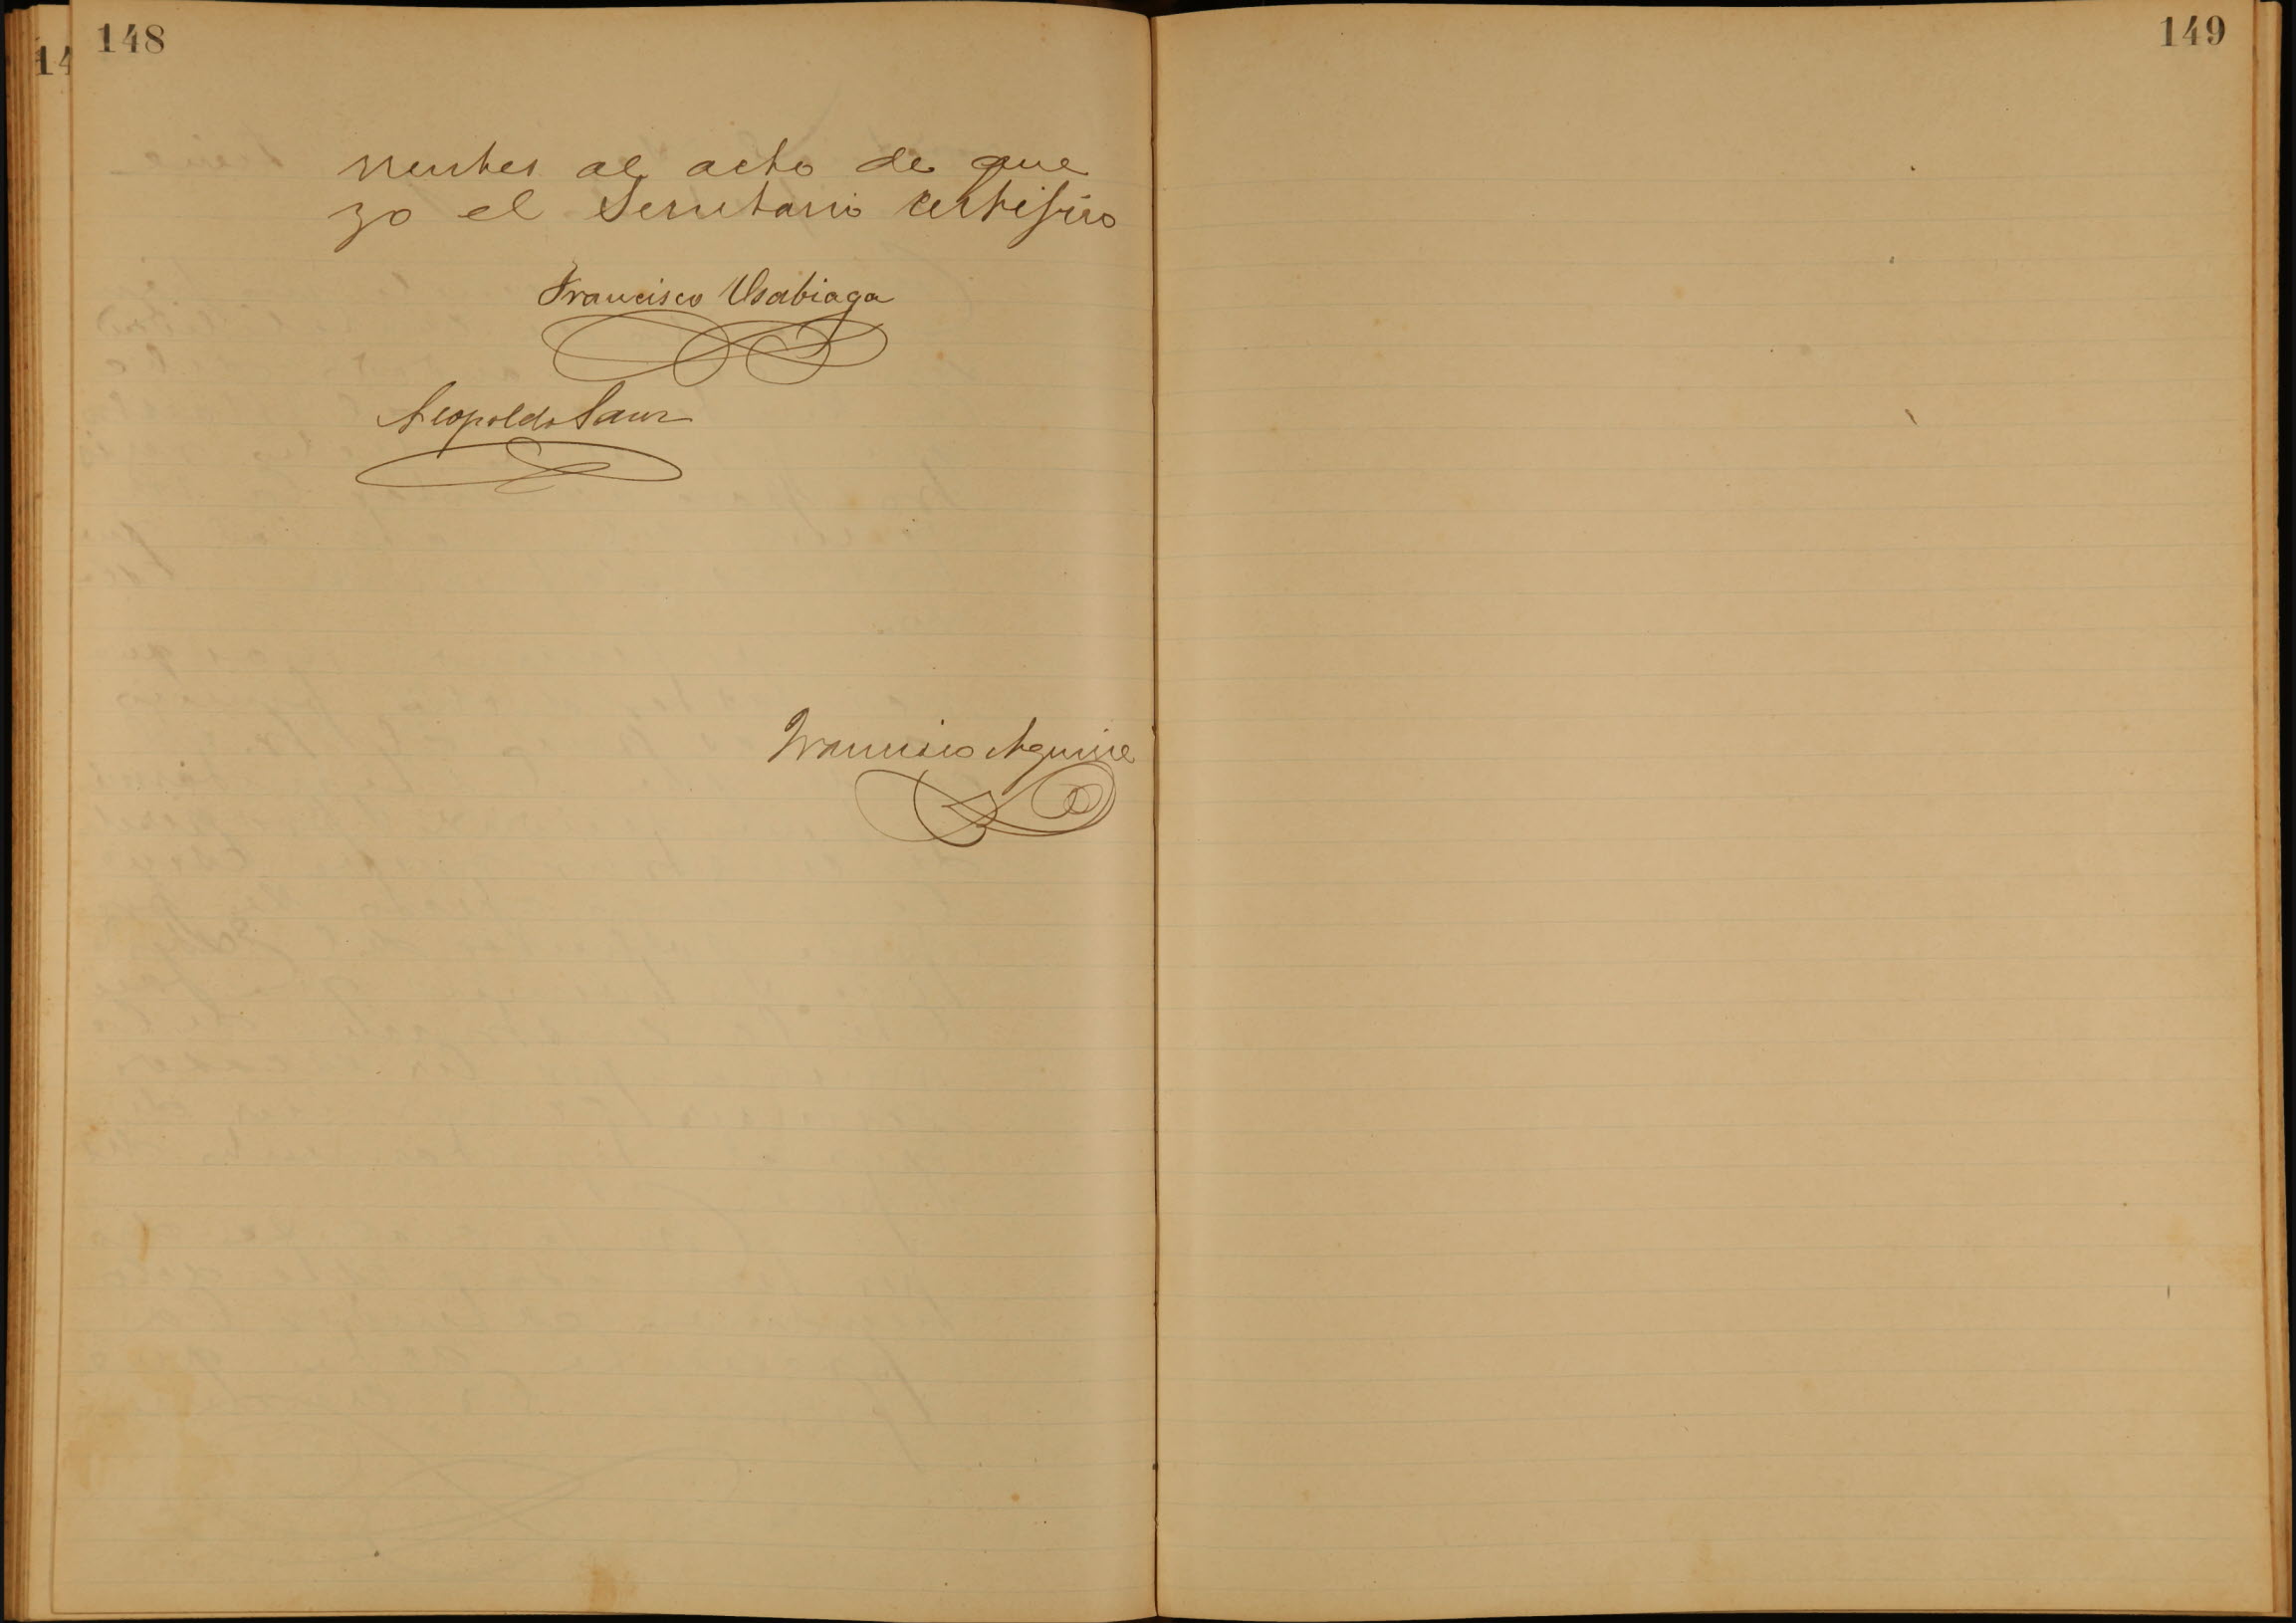 148
149
14
rrentes al acto de que
yo el Secretario certifico
Francisco Usabiaga
Leopoldo Sanz
Francisco Aguirre